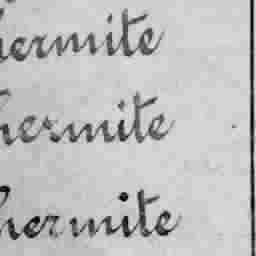 hermite
hermite
hermite